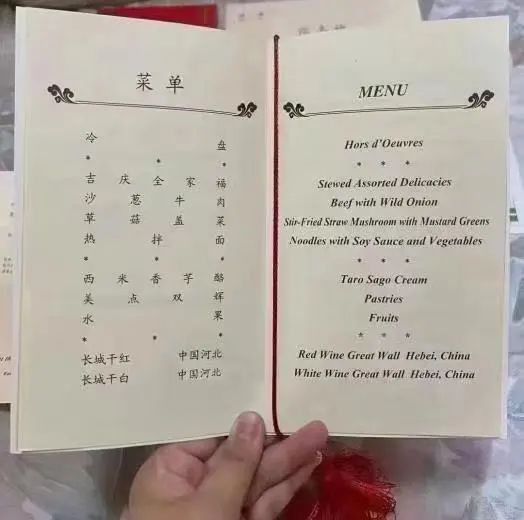 菜单
冷盘
* * *
吉庆全家福
沙葱牛肉
草菇盖菜
热拌面
* * *
西米香芋酪
美点双辉
水果
* * *
长城干红 中国河北
长城干白 中国河北
MENU
Hors d'Oeuvres
* * *
Stewed Assorted Delicacies
Beef with Wild Onion
Stir-Fried Straw Mushroom with Mustard Greens
Noodles with Soy Sauce and Vegetables
* * *
Taro Sago Cream
Pastries
Fruits
* * *
Red Wine Great Wall Hebei, China
White Wine Great Wall Hebei, China